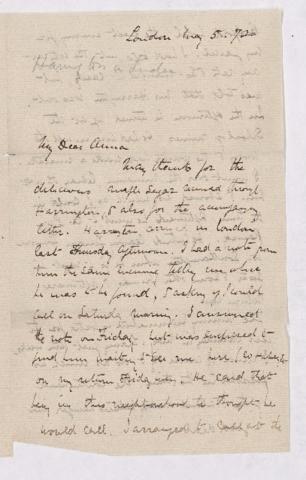 London Aug 5th
My Dear Anna
Many thanks for the
delicious maple sugar carried through
Harrington, & also for the accompanying
letter. Harrington arrived in London
last Thursday afternoon. I had a note from
him the same evening telling me where
he was to be found, & asking if I could
call on Saturday morning. I answered
the note on Friday, but was surprised to
find him waiting to see me here
on my return Friday eve. He said that
being in this neighbourhood he thought he
would call. I arranged to call at the